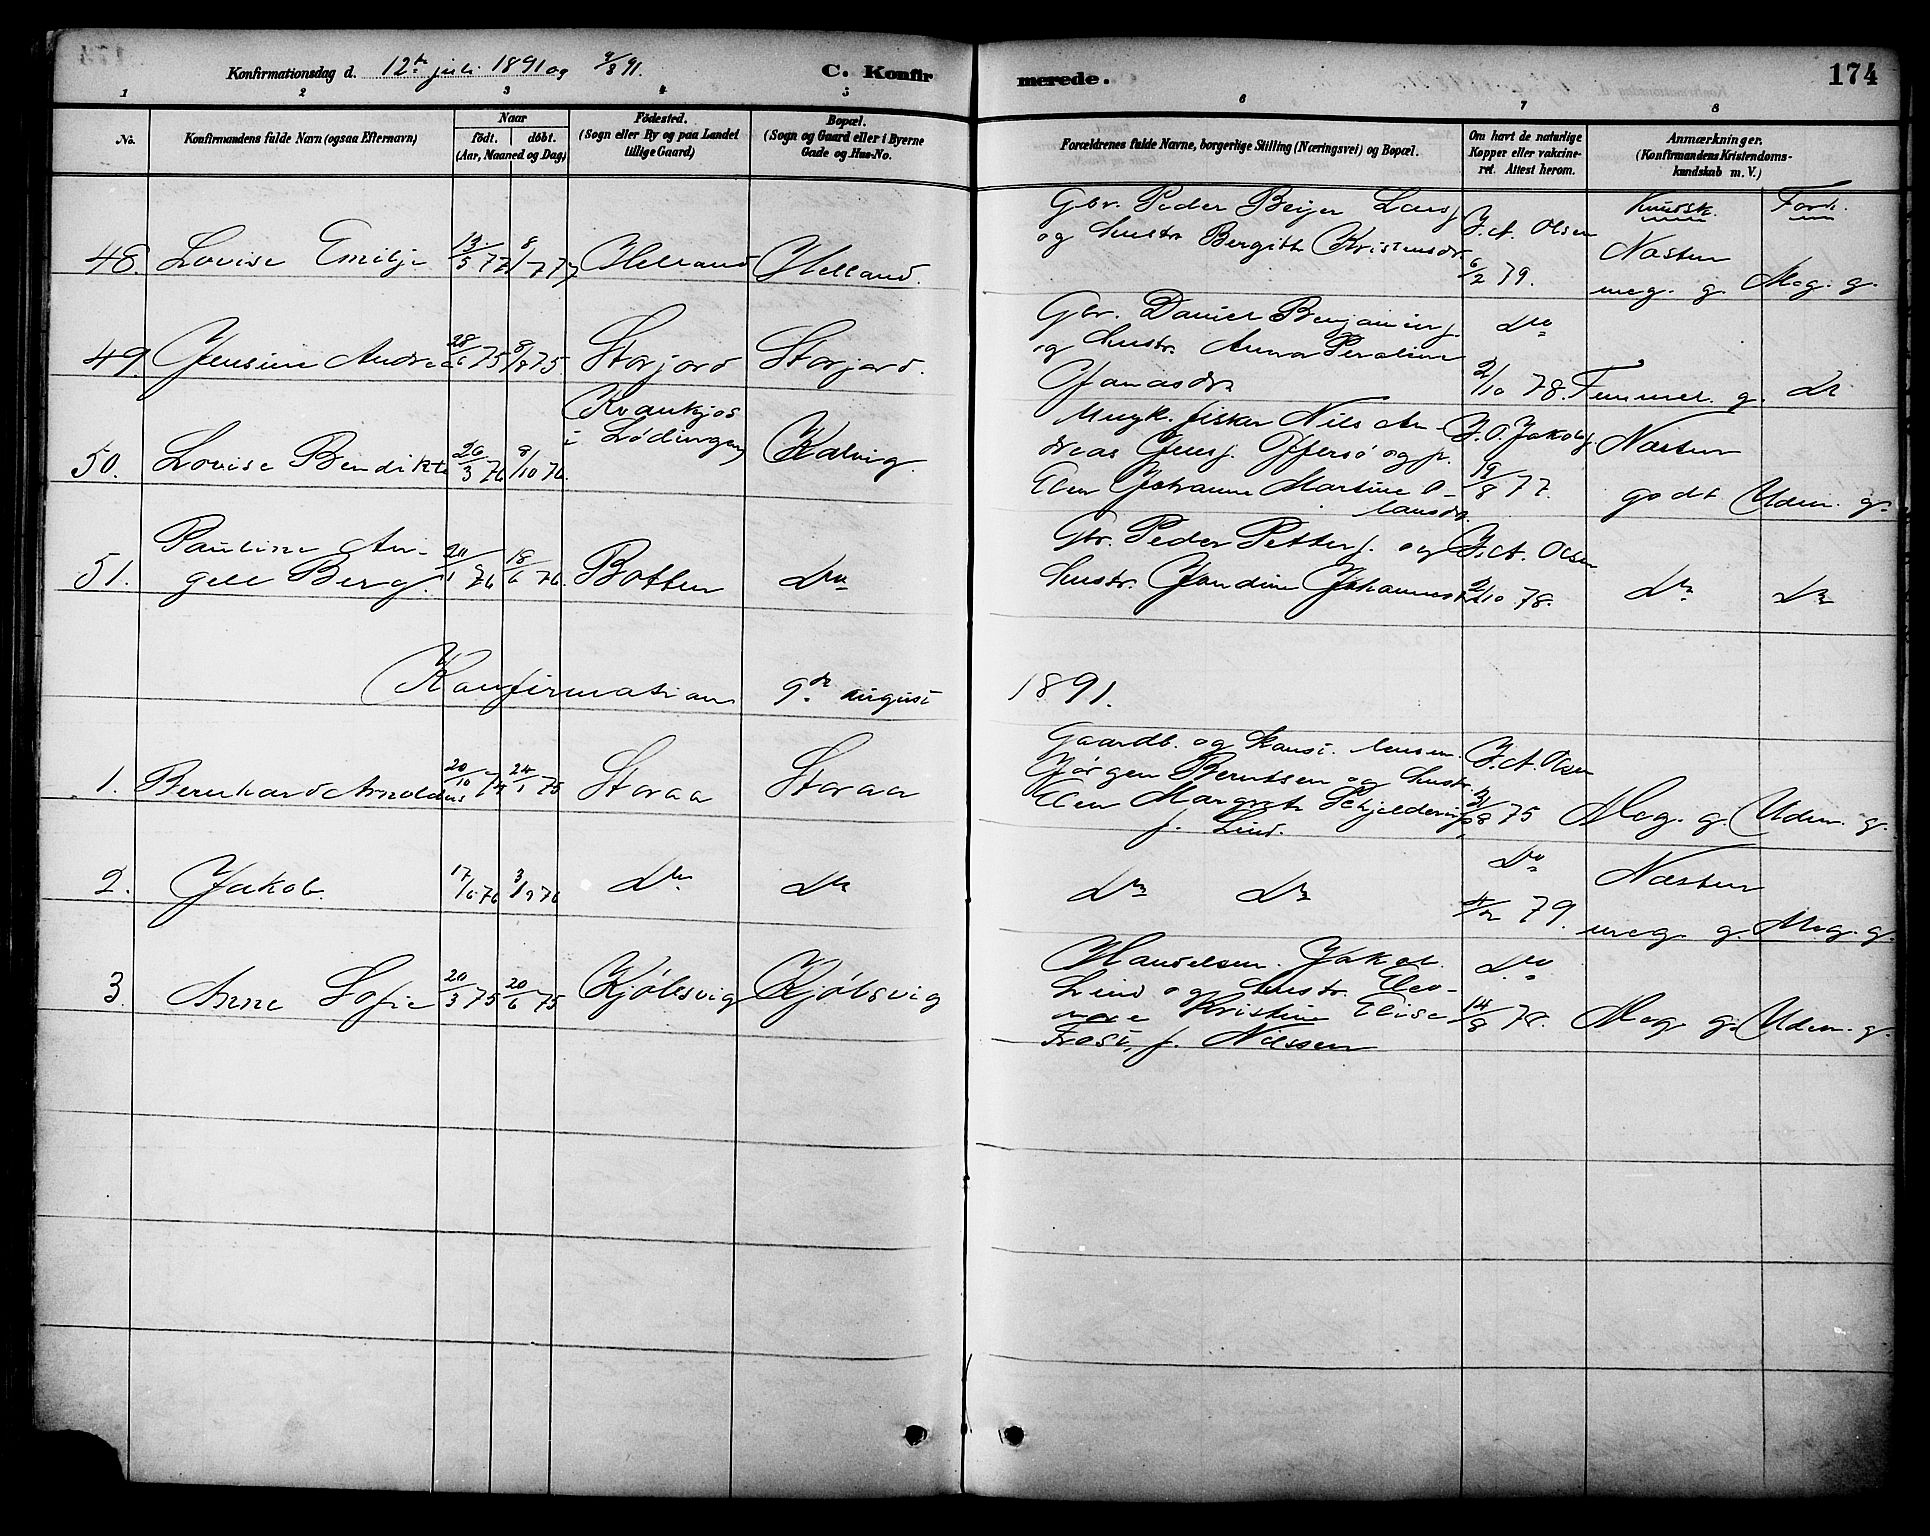 Konfirmationsdag d. 12te juli 1891 og 9/8 91. C. Konfir merede. 174
1 2 3 4 5 6 7 8
No. Konfirmandens fulde Navn (ogsaa Efternavn) Naar født. døbt. (Aar, Maaned og Dag)
Fødested. (Sogn eller By og paa Landet tillige Gaard)
Bopæl. (Sogn og Gaard eller i Byerne Gade og Hus-No.
Forældrenes fulde Navne, borgerlige Stilling (Næringsvei) og Bopæl.
Om havt de naturlige Kopper eller vakcineret. Attest herom.
Anmærkninger. (Konfirmandens Kristendomskundskab m. V.)
Kundsk. Forh.
48. Lovise Emilje 13/5 77 8/7 77 Helland Helland.
Gbr. Peder Beijer Larsj.
og hustr. Bergith Kristensdr.
J. A. Olsen 6/2 79.
Næsten meg. g. Meg. g.
49. Jensine Andrea 28/6 75 8/8 75 Storjord Storjord.
Gbr. Daniel Benjaminj.
og hustr. Anna Peraline
Jonasdr.
do 2/10 78. Temmel. g. do
50. Lovise Bendikte 26/3 76 8/10 76. Kvankjos i Lødingen Kalvig.
Ungk. fisker Nils An-
dreas Jensj. Offersø og p.
Elen Johanne Martine O-
lausdr.
J. O. Jakobj. 19/8 77.
Næsten godt Udm. g.
51. Pauline An-
gell Berg. 20/1 76 18/6 76. Botten do
Gbr. Peder Petterj. og
hustr. Jandine Johannesd.
J. A. Olsen 2/10 78. do do
Konfirmation 9de august 1891.
1. Bernhard Arnoldus 20/10 74 24/1 75 Storaa Storaa
Gaardb. og konst. lensm.
Jørgen Berntsen og hustr.
Elen Margreth Schjelderup
f. Lind.
J. A. Olsen 8 75 Meg. g. Udm. g.
2. Jakob. 17/6 76 3/9 76 do do
do do
do 4/2 79.
Næsten meg. g. Meg. g.
3. Anne Sofie 20/3 75 20/6 75 Kjølsvig Kjølsvig
Handelsm. Jakob
Lind og hustr. Eleo-
nore Kristine Elise
Frost, f. Nilssen
do 14/8 78. Meg. g. Udm. g.